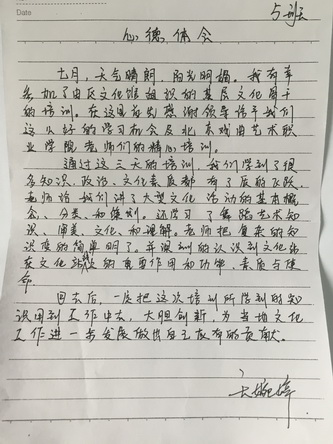 5班
Date
心德体会
七月，天气晴朗，阳光明媚。我有幸
参加了由区文化馆组织的基层文化骨干
的培训。在这里首先感谢领导给予我们
这么好的学习机会及北京戏曲艺术职
业学院老师们的精心培训。
通过这三天的培训，我们学到了很
多知识，政治、文化素质都有了质的飞跃，
老师给我们讲了大型文化活动的基本概
念、分类、和原则。还学习了舞蹈艺术知
识、审美、文化、和理解。老师把复杂的知
识变的简单明了。并深刻的认识到文化站
在文化的重要作用和功能、素质与使
命。
回去后，一定把这次培训所学到的知
识用到工作中去，大胆创新，为当地文化
工作进一步发展做出自己应有的贡献。